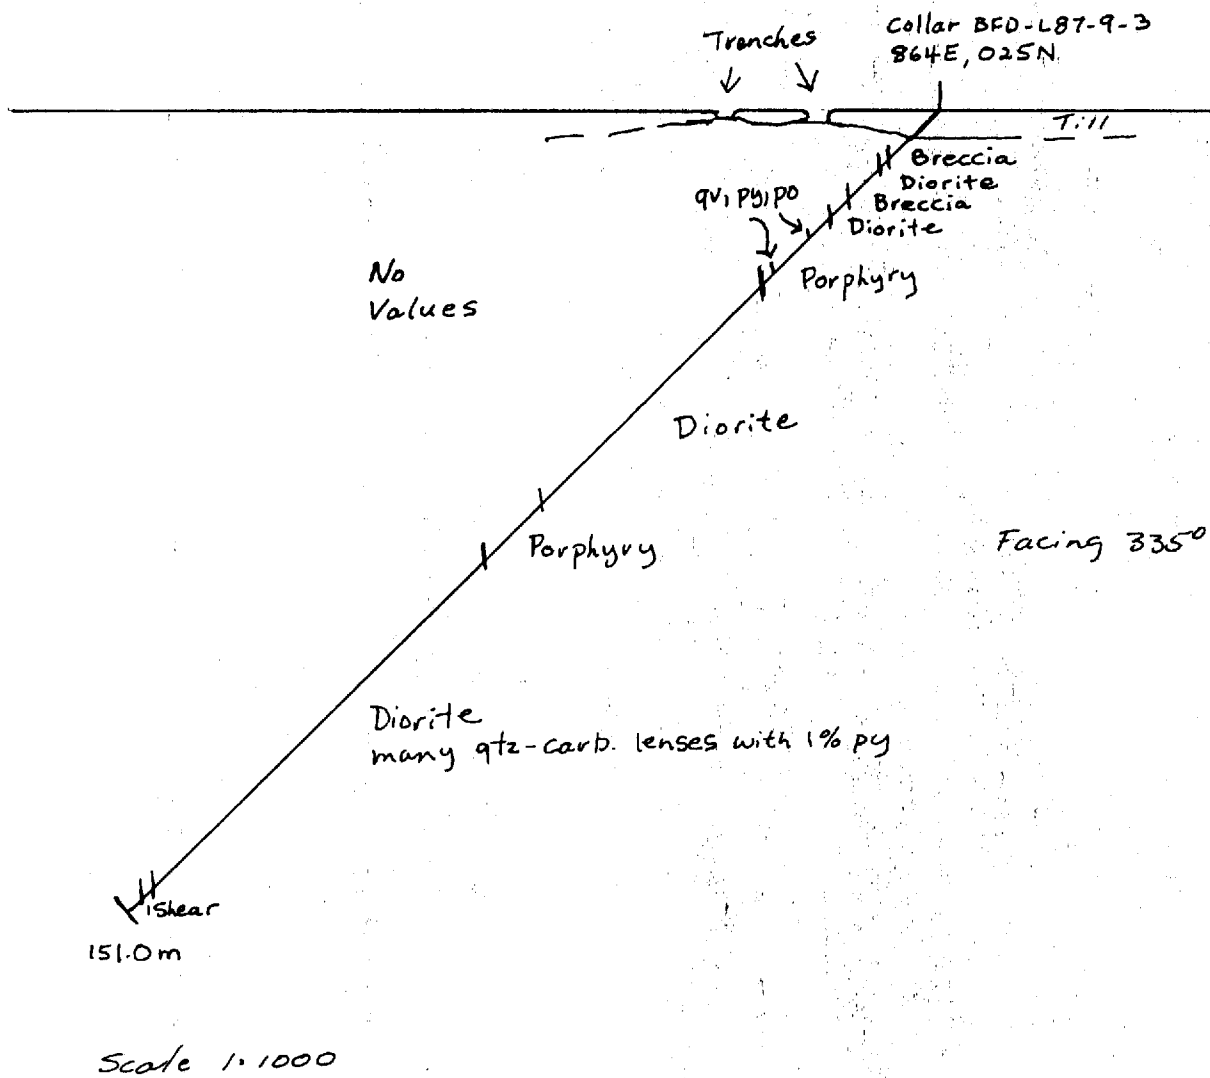 Trenches
Collar BFD-L87-9-3
864E, 025N
Till
Breccia
Diorite
Breccia
Diorite
qv, py, po
Porphyry
No
Values
Diorite
Porphyry
Facing 335°
Diorite
many qtz-carb. lenses with 1% py
Shear
151.0m
Scale 1:1000